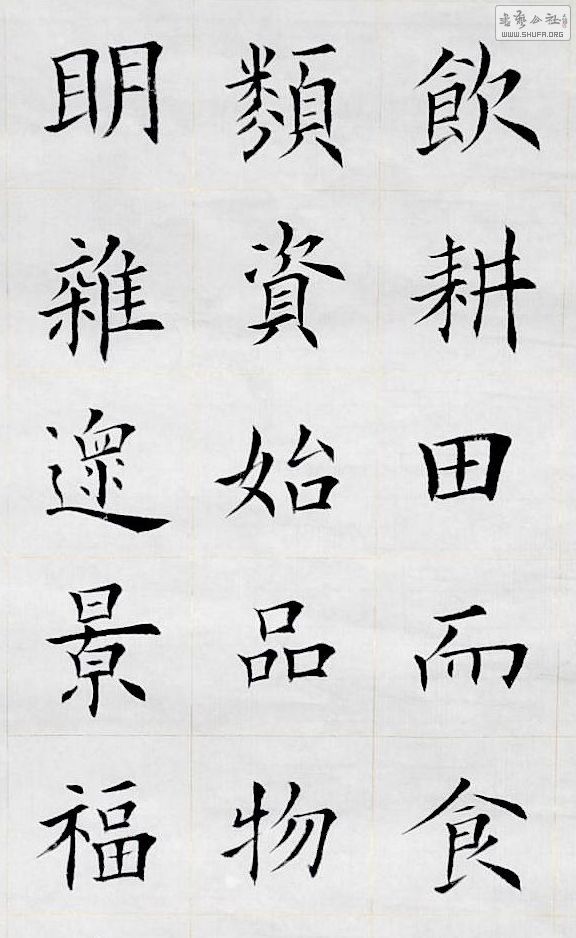 飲耕田而食
類資始品物
眀雜遝景福
書藝公社
WWW.SHUFA.ORG